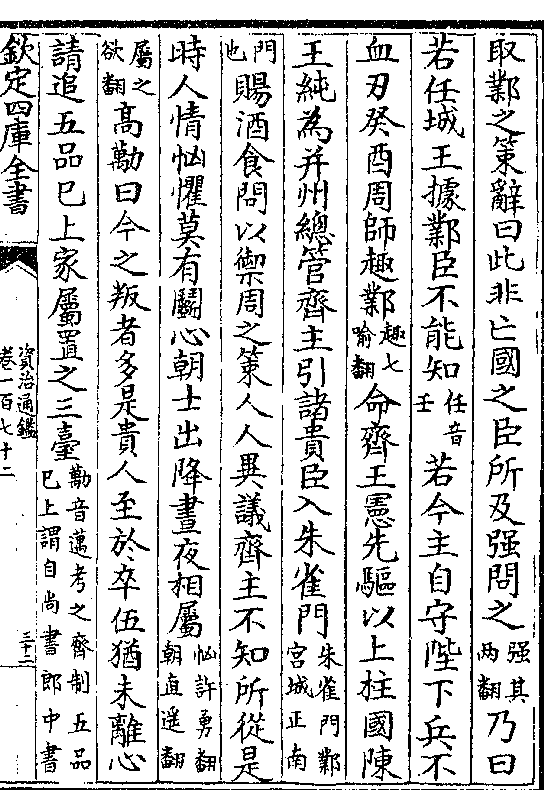 取鄴之策辭曰此非亡國之臣所及强問之强其两翻乃曰
若任城王據鄴臣不能知任音壬若今主自守陛下兵不
血刃癸酉周師趣鄴趣七喻翻命齊王憲先驅以上柱國陳
王純為并州總管齊主引諸貴臣入朱雀門朱雀門鄴宮城正南
門也賜酒食問以禦周之策人人異議齊主不知所從是
時人情忷懼莫有鬭心朝士出降晝夜相屬忷許勇翻朝直遥翻
屬之欲翻高勱曰今之叛者多是貴人至於卒伍猶未離心
請追五品已上家屬置之三臺勱音邁考之齊制五品已上謂自尚書郎中書
欽定四庫全書
資治通鑑
卷一百七十二
三十二